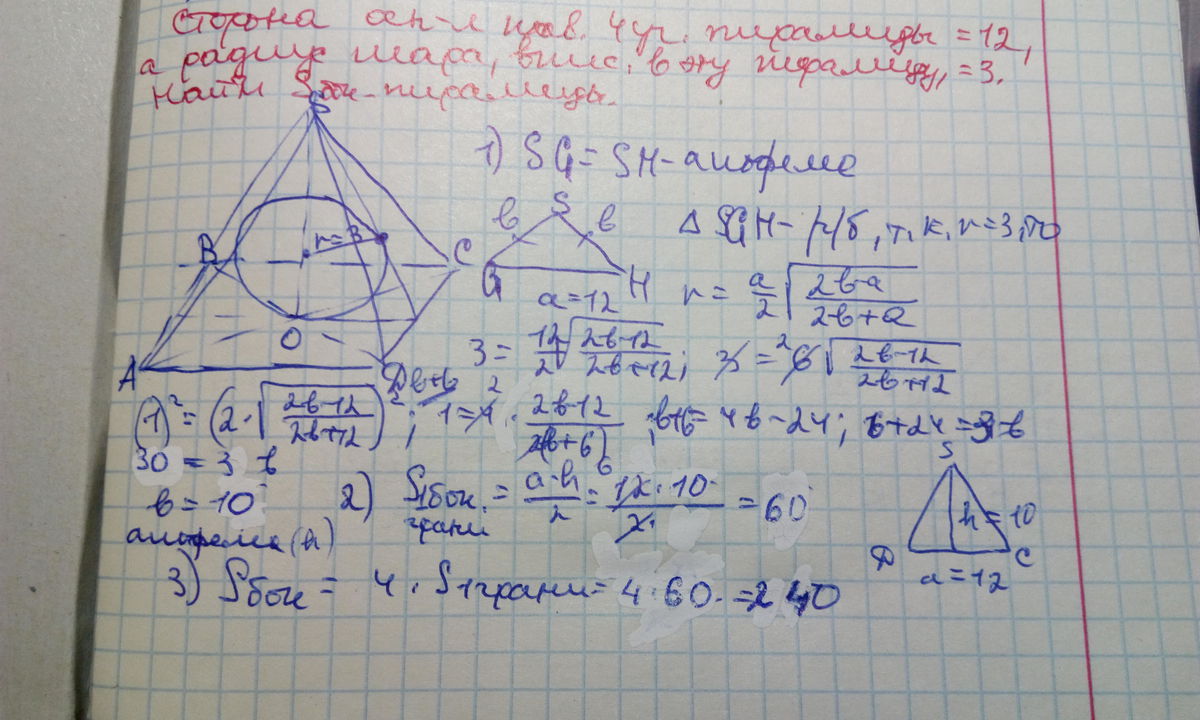 сторона осн-я прав. 4уг. пирамиды = 12,
а радиус шара, впис. в эту пирамиду, = 3.
Найти Sбок. пирамиды.
S
1) SG = SH - апофема
r = 3
B
C
O
A
D
S
в в
G H
a = 12
Δ SGH - р/б, т. к. r = 3, то
r = a/2 √((2в-a)/(2в+a))
3 = 12/2 √((2в-12)/(2в+12)); 3 = 6 √((2в-12)/(2в+12))
(1)² = (2·√((2в-12)/(2в+12)))²; 1 = 4 · (2в-12)/(2(в+6)); в+6 = 4в - 24; 6+24 = 4в-в
30 = 3 в
в = 10
апофема (h)
2) S1бок. грани = a·h/2 = 12·10/2 = 60
S
h = 10
D C
a = 12
3) Sбок = 4 · S1грани = 4·60 = 240